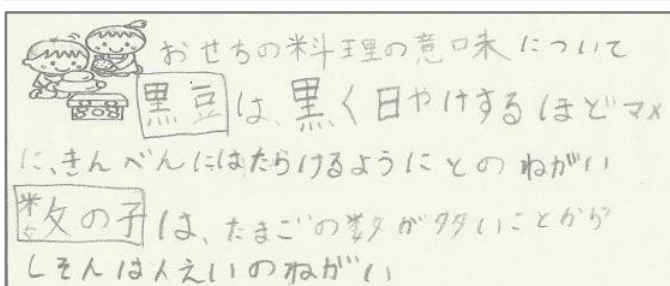 おせちの料理の意味について
黒豆は、黒く日やけするほどマメ
に、きんべんにはたらけるようにとのねがい
数の子は、たまごの数が多いことから
しそんはんえいのねがい